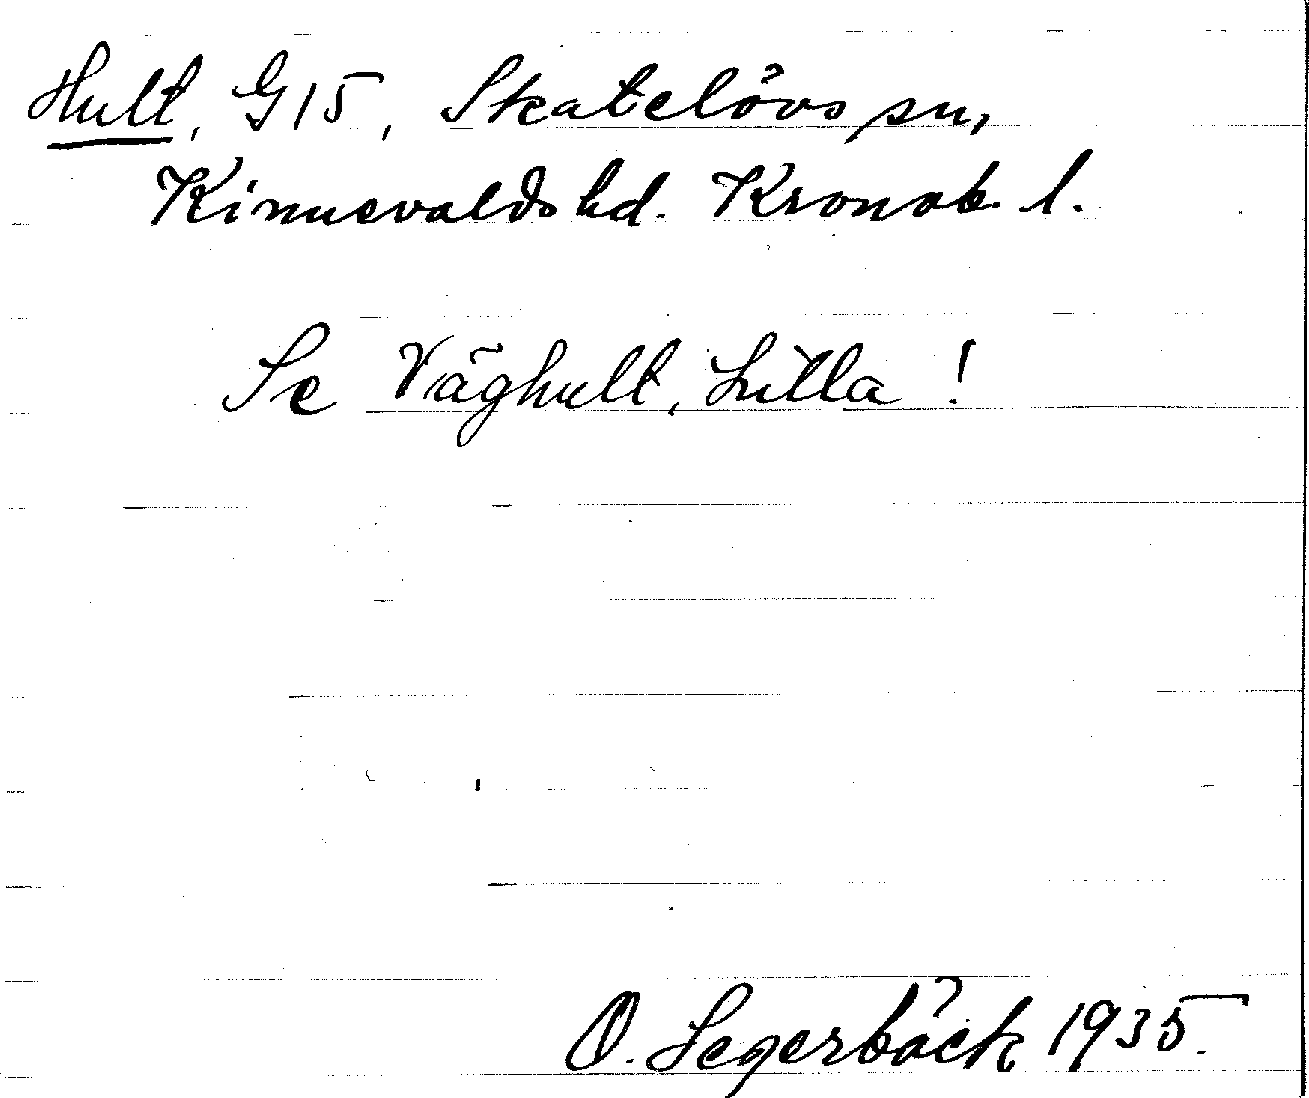 Hult, G15, Skatelövs sn,
Kinnevalds hd. Kronob. l.
Se Väghult, Lilla!
O. Segerbäck 1935.